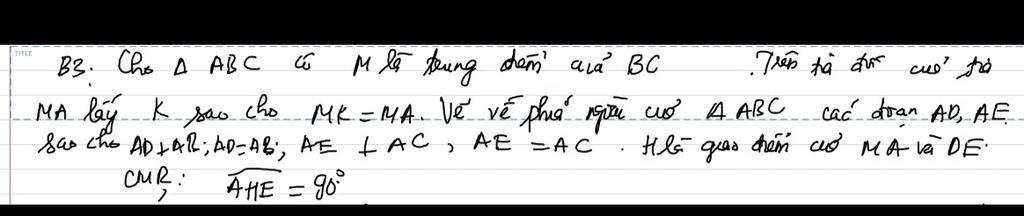 TITLE
B3. Cho Δ ABC có M là trung điểm của BC. Trên tia đối của tia
MA lấy K sao cho MK = MA. Vẽ về phía ngoài của Δ ABC các đoạn AD, AE
sao cho AD ⊥ AB; AD = AB; AE ⊥ AC, AE = AC. H là giao điểm của MA và DE.
CMR: AHE = 90°